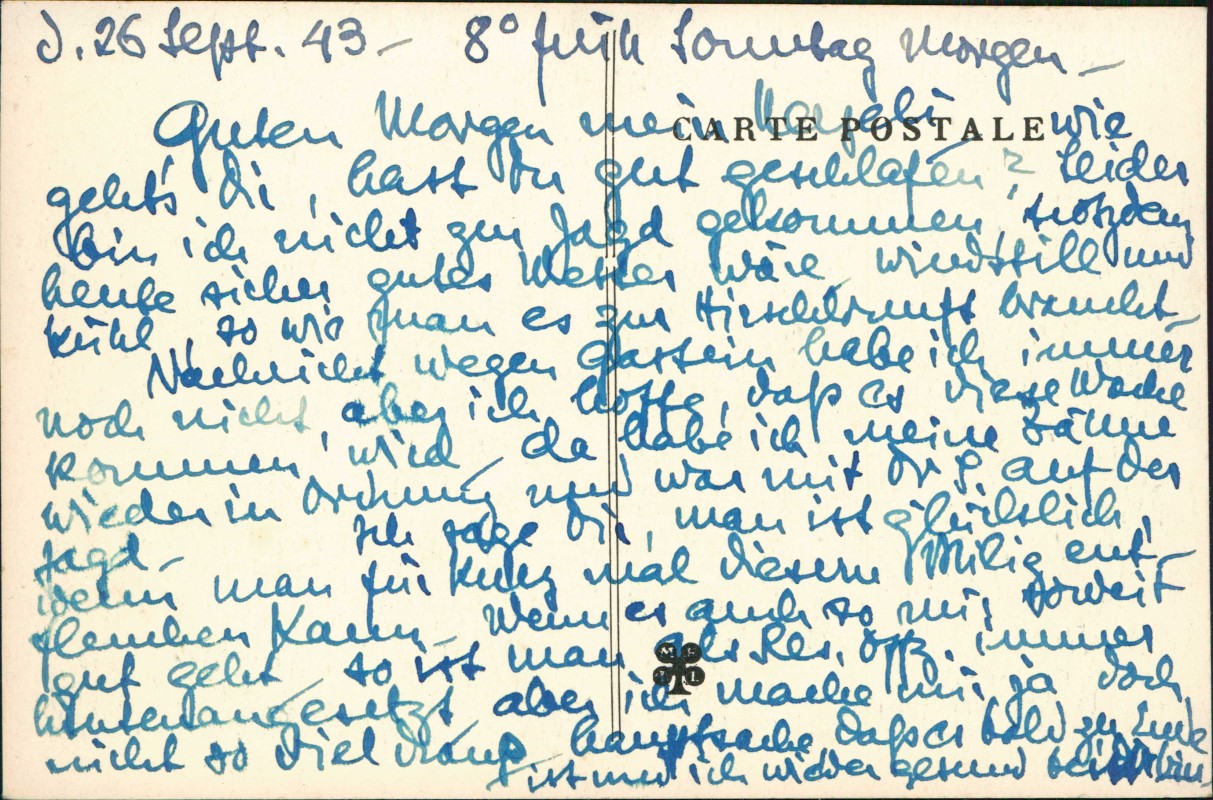 d. 26 Sept. 43 – 8° früh Sonntag Morgen –
CARTE POSTALE
Guten Morgen mein wie
geht's Dir, hast Du gut geschlafen? Leider
bin ich nicht zur Jagd gekommen, trotzdem
heute sicher gutes Wetter wäre, windstill und
kühl, so wie man es zur Hirschbrunft braucht –
Nachricht wegen Gastein habe ich immer
noch nicht, aber ich hoffe, daß es diese Woche
kommen wird – da habe ich meine Zähne
wieder in Ordnung und war mit Dr. S. auf der
Jagd – Ich sage Dir, man ist glücklich,
wenn man für kurz mal diesem ent-
fliehen kann – Wenn es auch so mir soweit
gut geht – so ist man als Res. Off. immer
hintenangesetzt, aber ich mache mir ja doch
nicht so viel draus, hauptsache, daß es bald zu Ende
ist und ich wieder gesund bei bin.